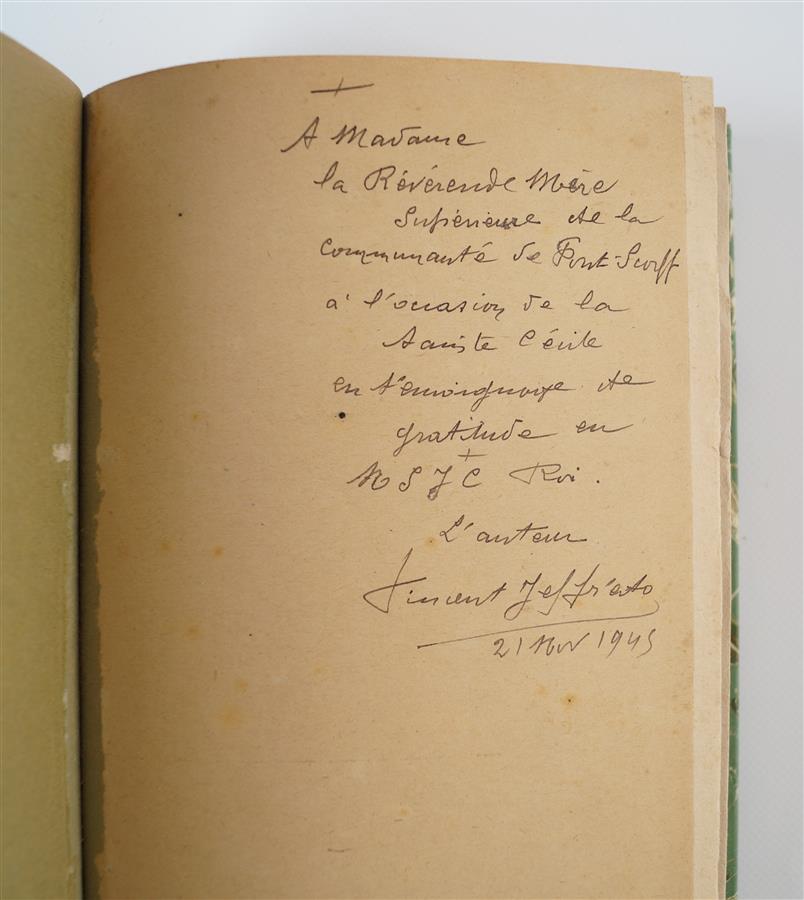 +
A Madame
la Révérende Mère
Supérieure de la
communauté de Pont-Scorff
à l'occasion de la
Sainte Cécile
en témoignage de
gratitude en
N S J C Roi.
L'auteur
Vincent Jeffrédo
21 Nov 1945